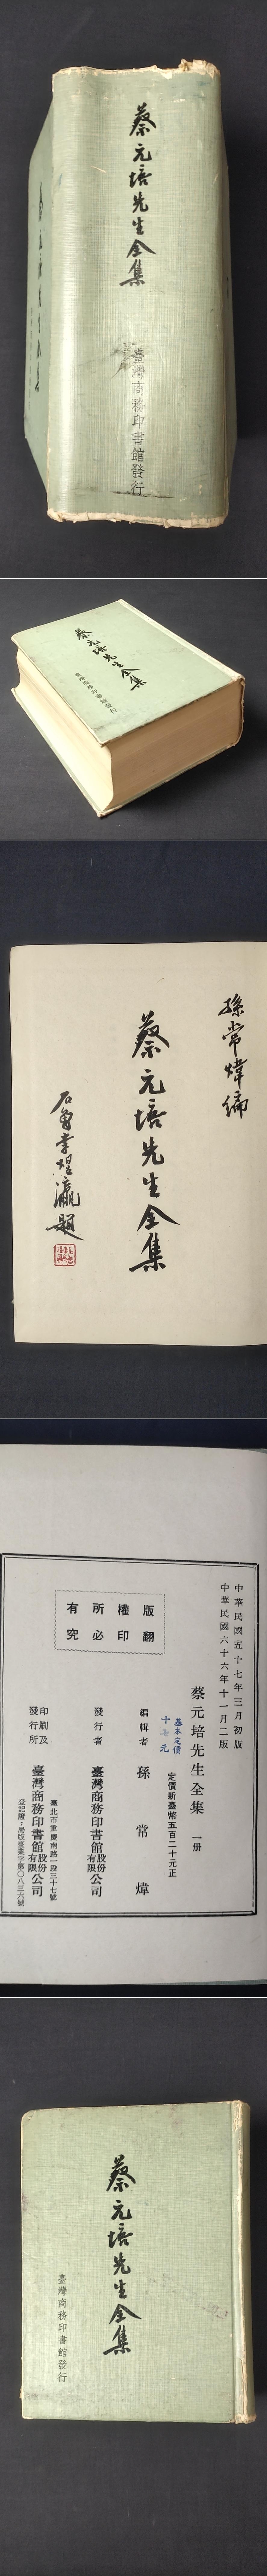 蔡元培先生全集
臺灣商務印書館發行
蔡元培先生全集
蔡元培先生全集
臺灣商務印書館發行
孫常煒編
蔡元培先生全集
石曾李煜瀛題
中華民國五十七年三月初版
中華民國六十六年十一月二版
蔡元培先生全集 一册
基本定價
十七元
定價新臺幣五百二十元正
編輯者 孫常煒
版權所有
翻印必究
發行者 臺灣商務印書館股份有限公司
臺北市重慶南路一段三十七號
印刷及發行所 臺灣商務印書館股份有限公司
登記證：局版臺業字第〇八三六號
蔡元培先生全集
臺灣商務印書館發行